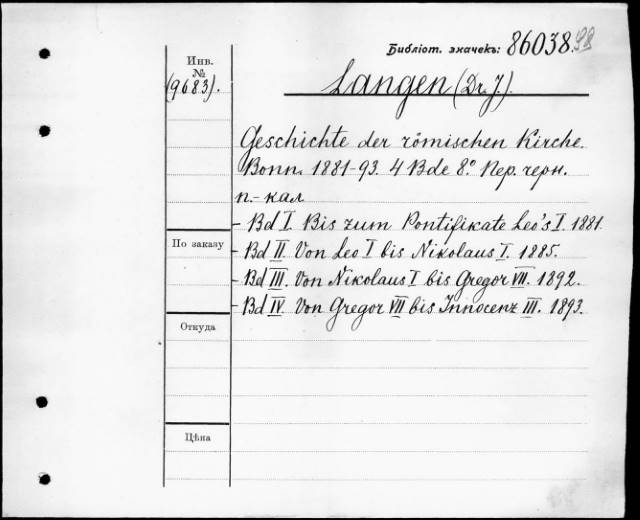 Библіот. значекъ: 86038.
Инв.
№
(9683).
Langen (Dr. J.).
Geschichte der römischen Kirche.
Bonn. 1881-93. 4 Bde 8.° Пер. черн.
п.-кал
- Bd I. Bis zum Pontifikate Leo's I. 1881.
По заказу
- Bd II. Von Leo I bis Nikolaus I. 1885.
- Bd III. Von Nikolaus I bis Gregor VII. 1892.
- Bd IV. Von Gregor VII bis Innocenz III. 1893.
Откуда
Цѣна